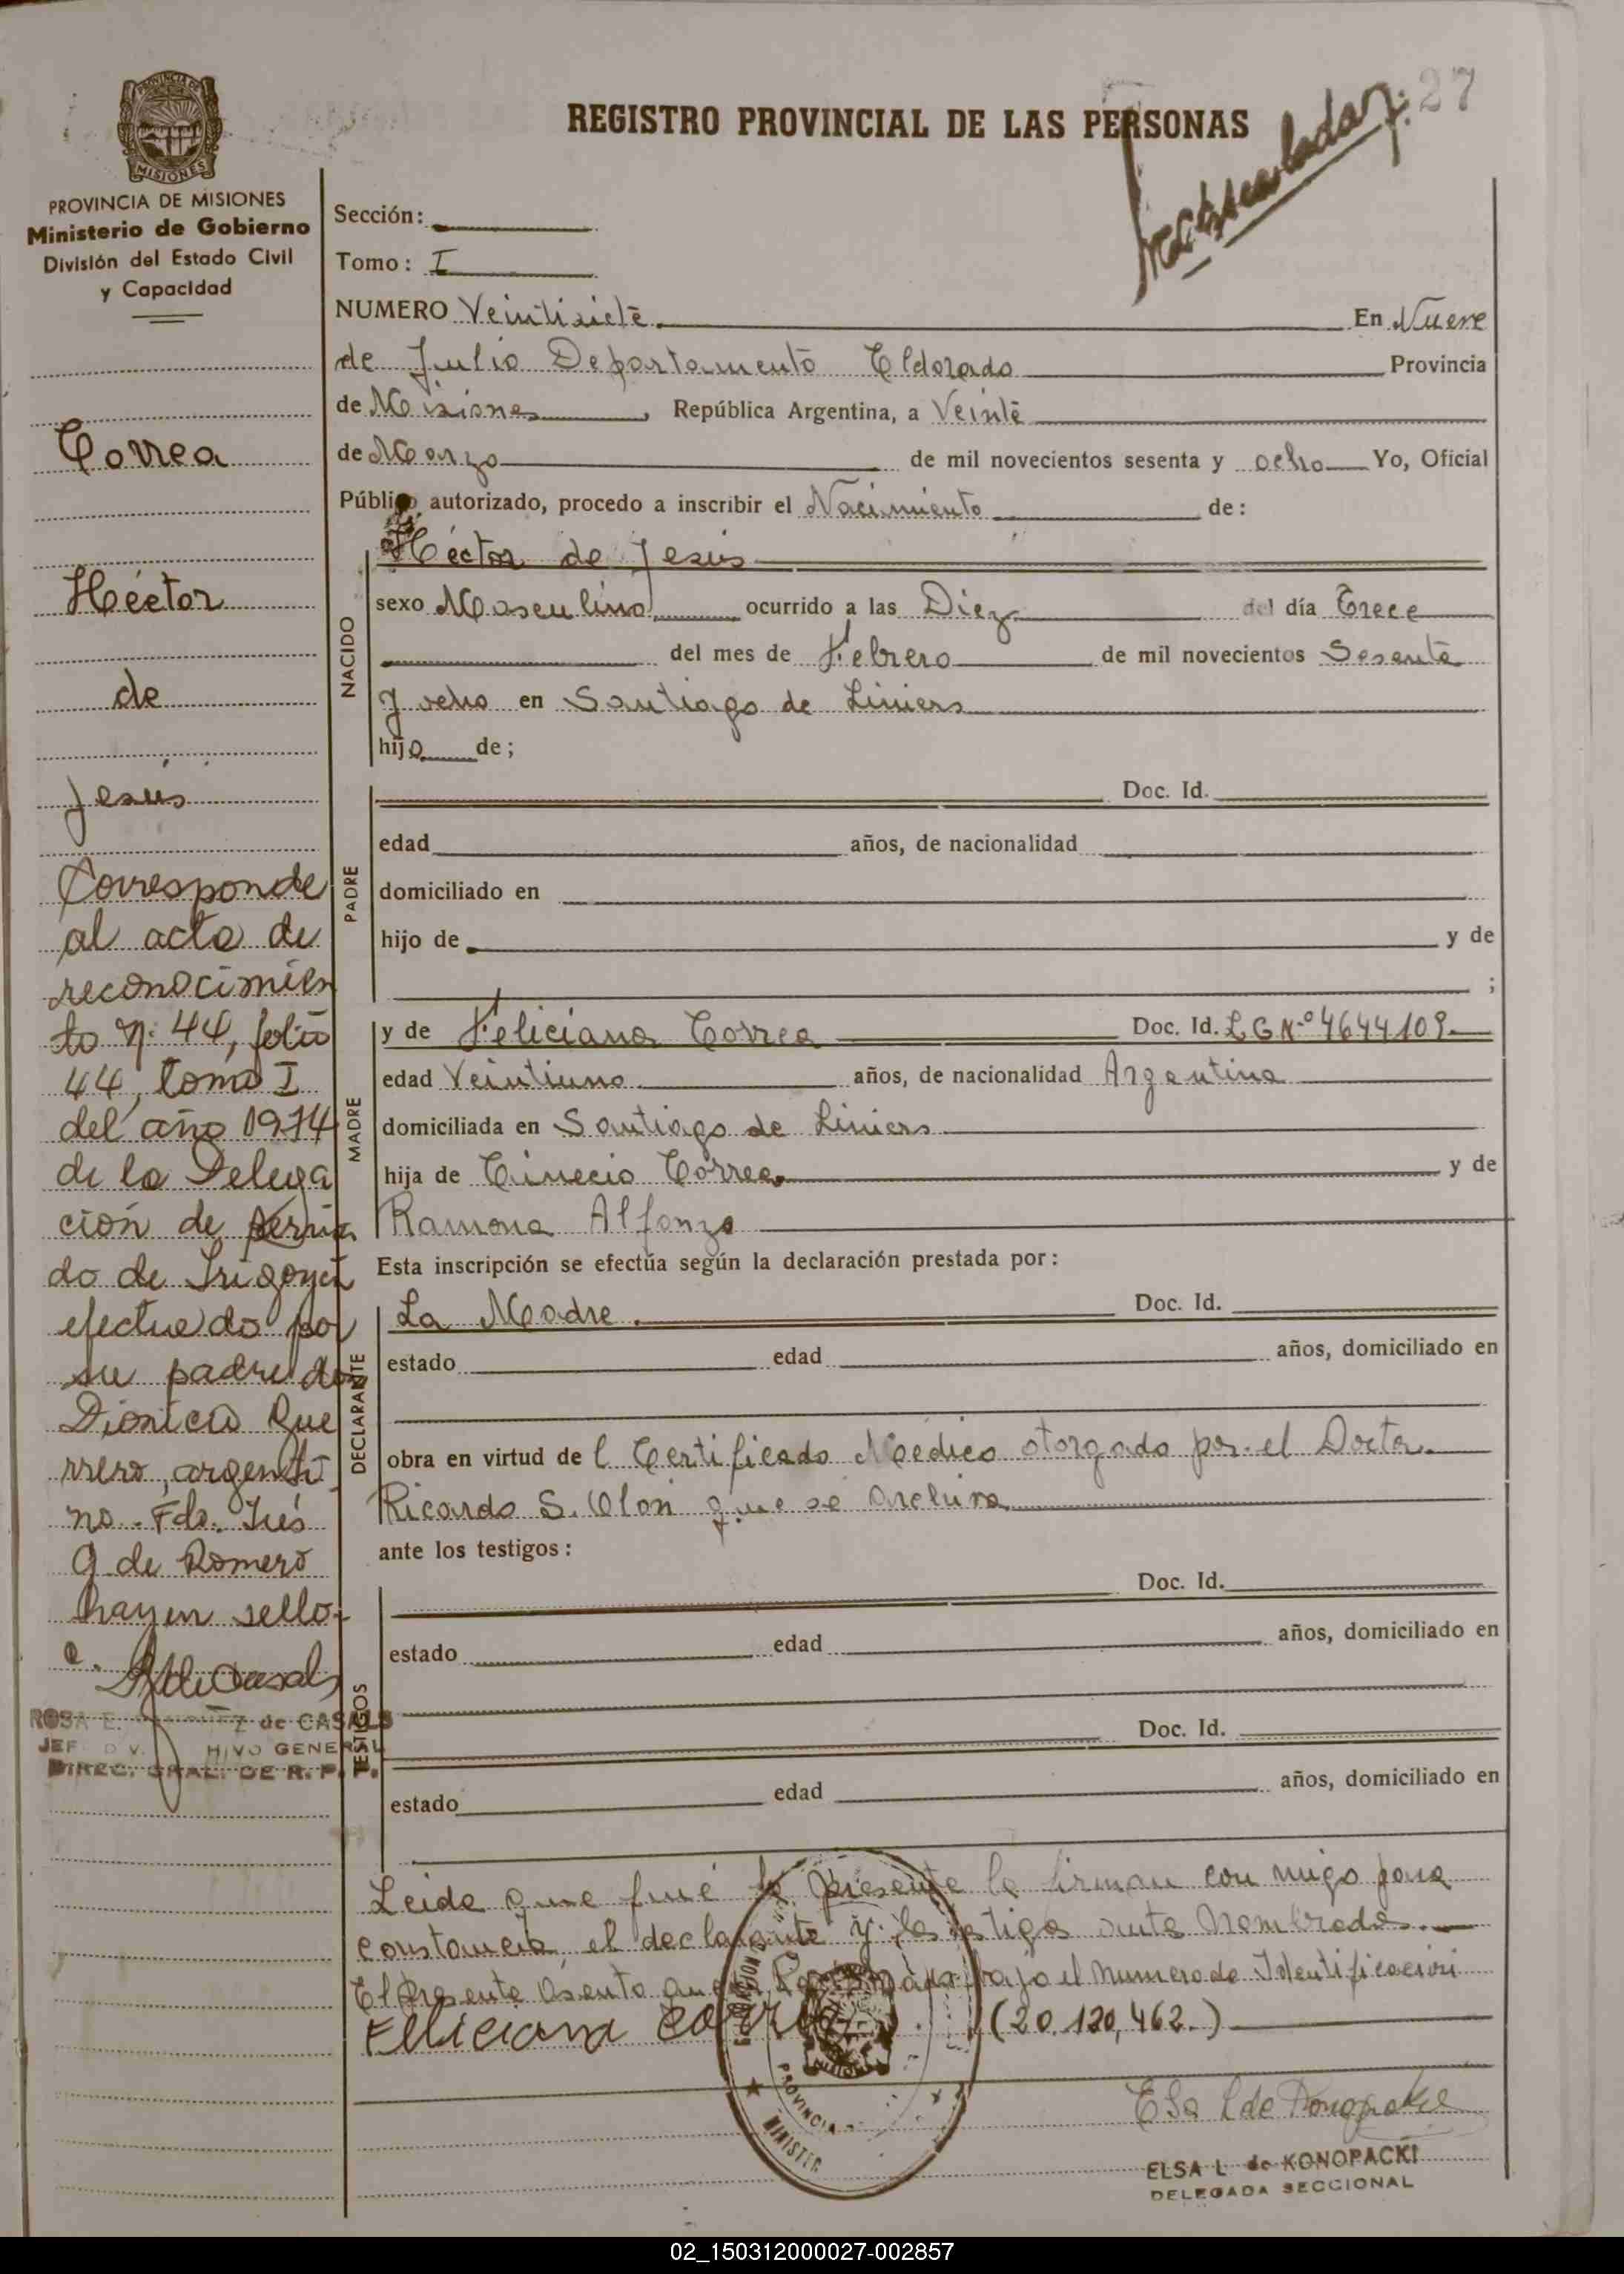 27
REGISTRO PROVINCIAL DE LAS PERSONAS
PROVINCIA DE MISIONES
Ministerio de Gobierno
División del Estado Civil
y Capacidad
Correa
Héctor
de
Jesús
Corresponde
al acta de
reconocimien
to Nº 44, folio
44, tomo I
del año 1974
de la Delega
ción de
do de Irigoyen
efectuado por
su padre don
Dionicio Gue
rrero, argenti
no. Fdo. Inés
G de Romero
hay un sello.
ROSA E. de CASALS
HIVO GENERAL
DIREC. GRAL. DE R. P.
Sección:
Tomo: I
NUMERO Veintisiete En Nueve
de Julio Departamento Eldorado Provincia
de Misiones, República Argentina, a Veinte
de Marzo de mil novecientos sesenta y ocho Yo, Oficial
Público autorizado, procedo a inscribir el Nacimiento de:
Héctor de Jesús
NACIDO
sexo Masculino ocurrido a las Diez del día Trece
del mes de Febrero de mil novecientos Sesenta
y ocho en Santiago de Liniers
hijo de;
PADRE
Doc. Id.
edad años, de nacionalidad
domiciliado en
hijo de y de
;
MADRE
y de Feliciana Correa Doc. Id. L C Nº 4644109
edad Veintiuno años, de nacionalidad Argentina
domiciliada en Santiago de Liniers
hija de Correa y de
Ramona Alfonzo
Esta inscripción se efectúa según la declaración prestada por:
DECLARANTE
La Madre. Doc. Id.
estado edad años, domiciliado en
obra en virtud de l Certificado Médico otorgado por el Doctor
Ricardo S. que se archiva
ante los testigos:
TESTIGOS
Doc. Id.
estado edad años, domiciliado en
Doc. Id.
estado edad años, domiciliado en
Leida que fué la presente la firman con migo para
constancia el declarante y los testigos ante nombrados.
El presente asento bajo el numero de Identificación
Feliciana Correa (20.120,462.)
PROVINCIA
MINISTER
ELSA L de KONOPACKI
DELEGADA SECCIONAL
02_150312000027-002857